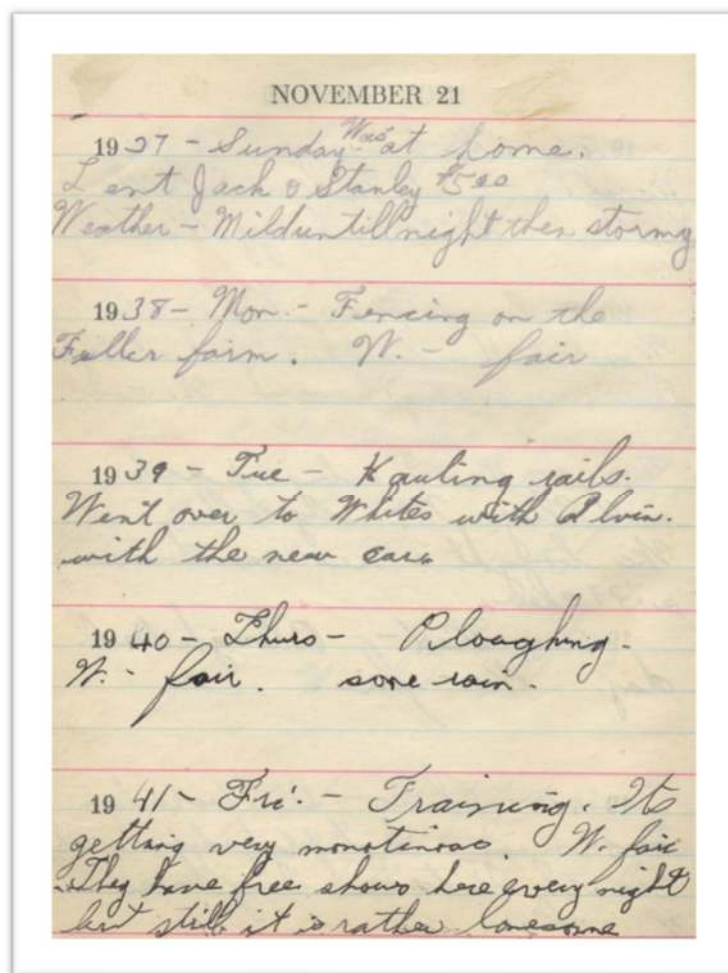 NOVEMBER 21
1937 - Sunday - Was at home.
Lent Jack & Stanley $5.00
Weather - Mild untill night then stormy
1938 - Mon. - Fencing on the
Fuller farm. W. - fair
1939 - Tue - Hauling rails.
Went over to Whites with Alvin.
with the new car.
1940 - Thurs - Ploughing.
W. - fair. some rain.
1941 - Fri. - Training. Its
getting very monotinous W. fair
They have free shows here every night
but still it is rather lonesome